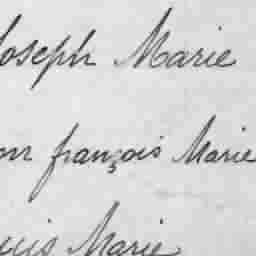 Joseph Marie
françois Marie
Marie